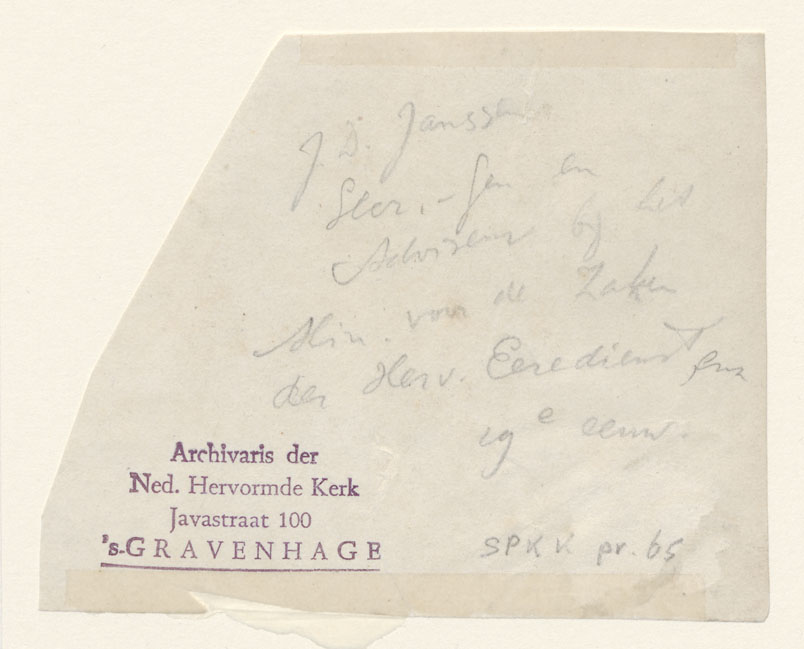 J. D. Janssen
Secr.-Gen en
Adviseur bij het
Min. voor de Zaken
der Herv. Eeredienst enz
19e eeuw.
Archivaris der
Ned. Hervormde Kerk
Javastraat 100
's-GRAVENHAGE
SPKK pr. 65